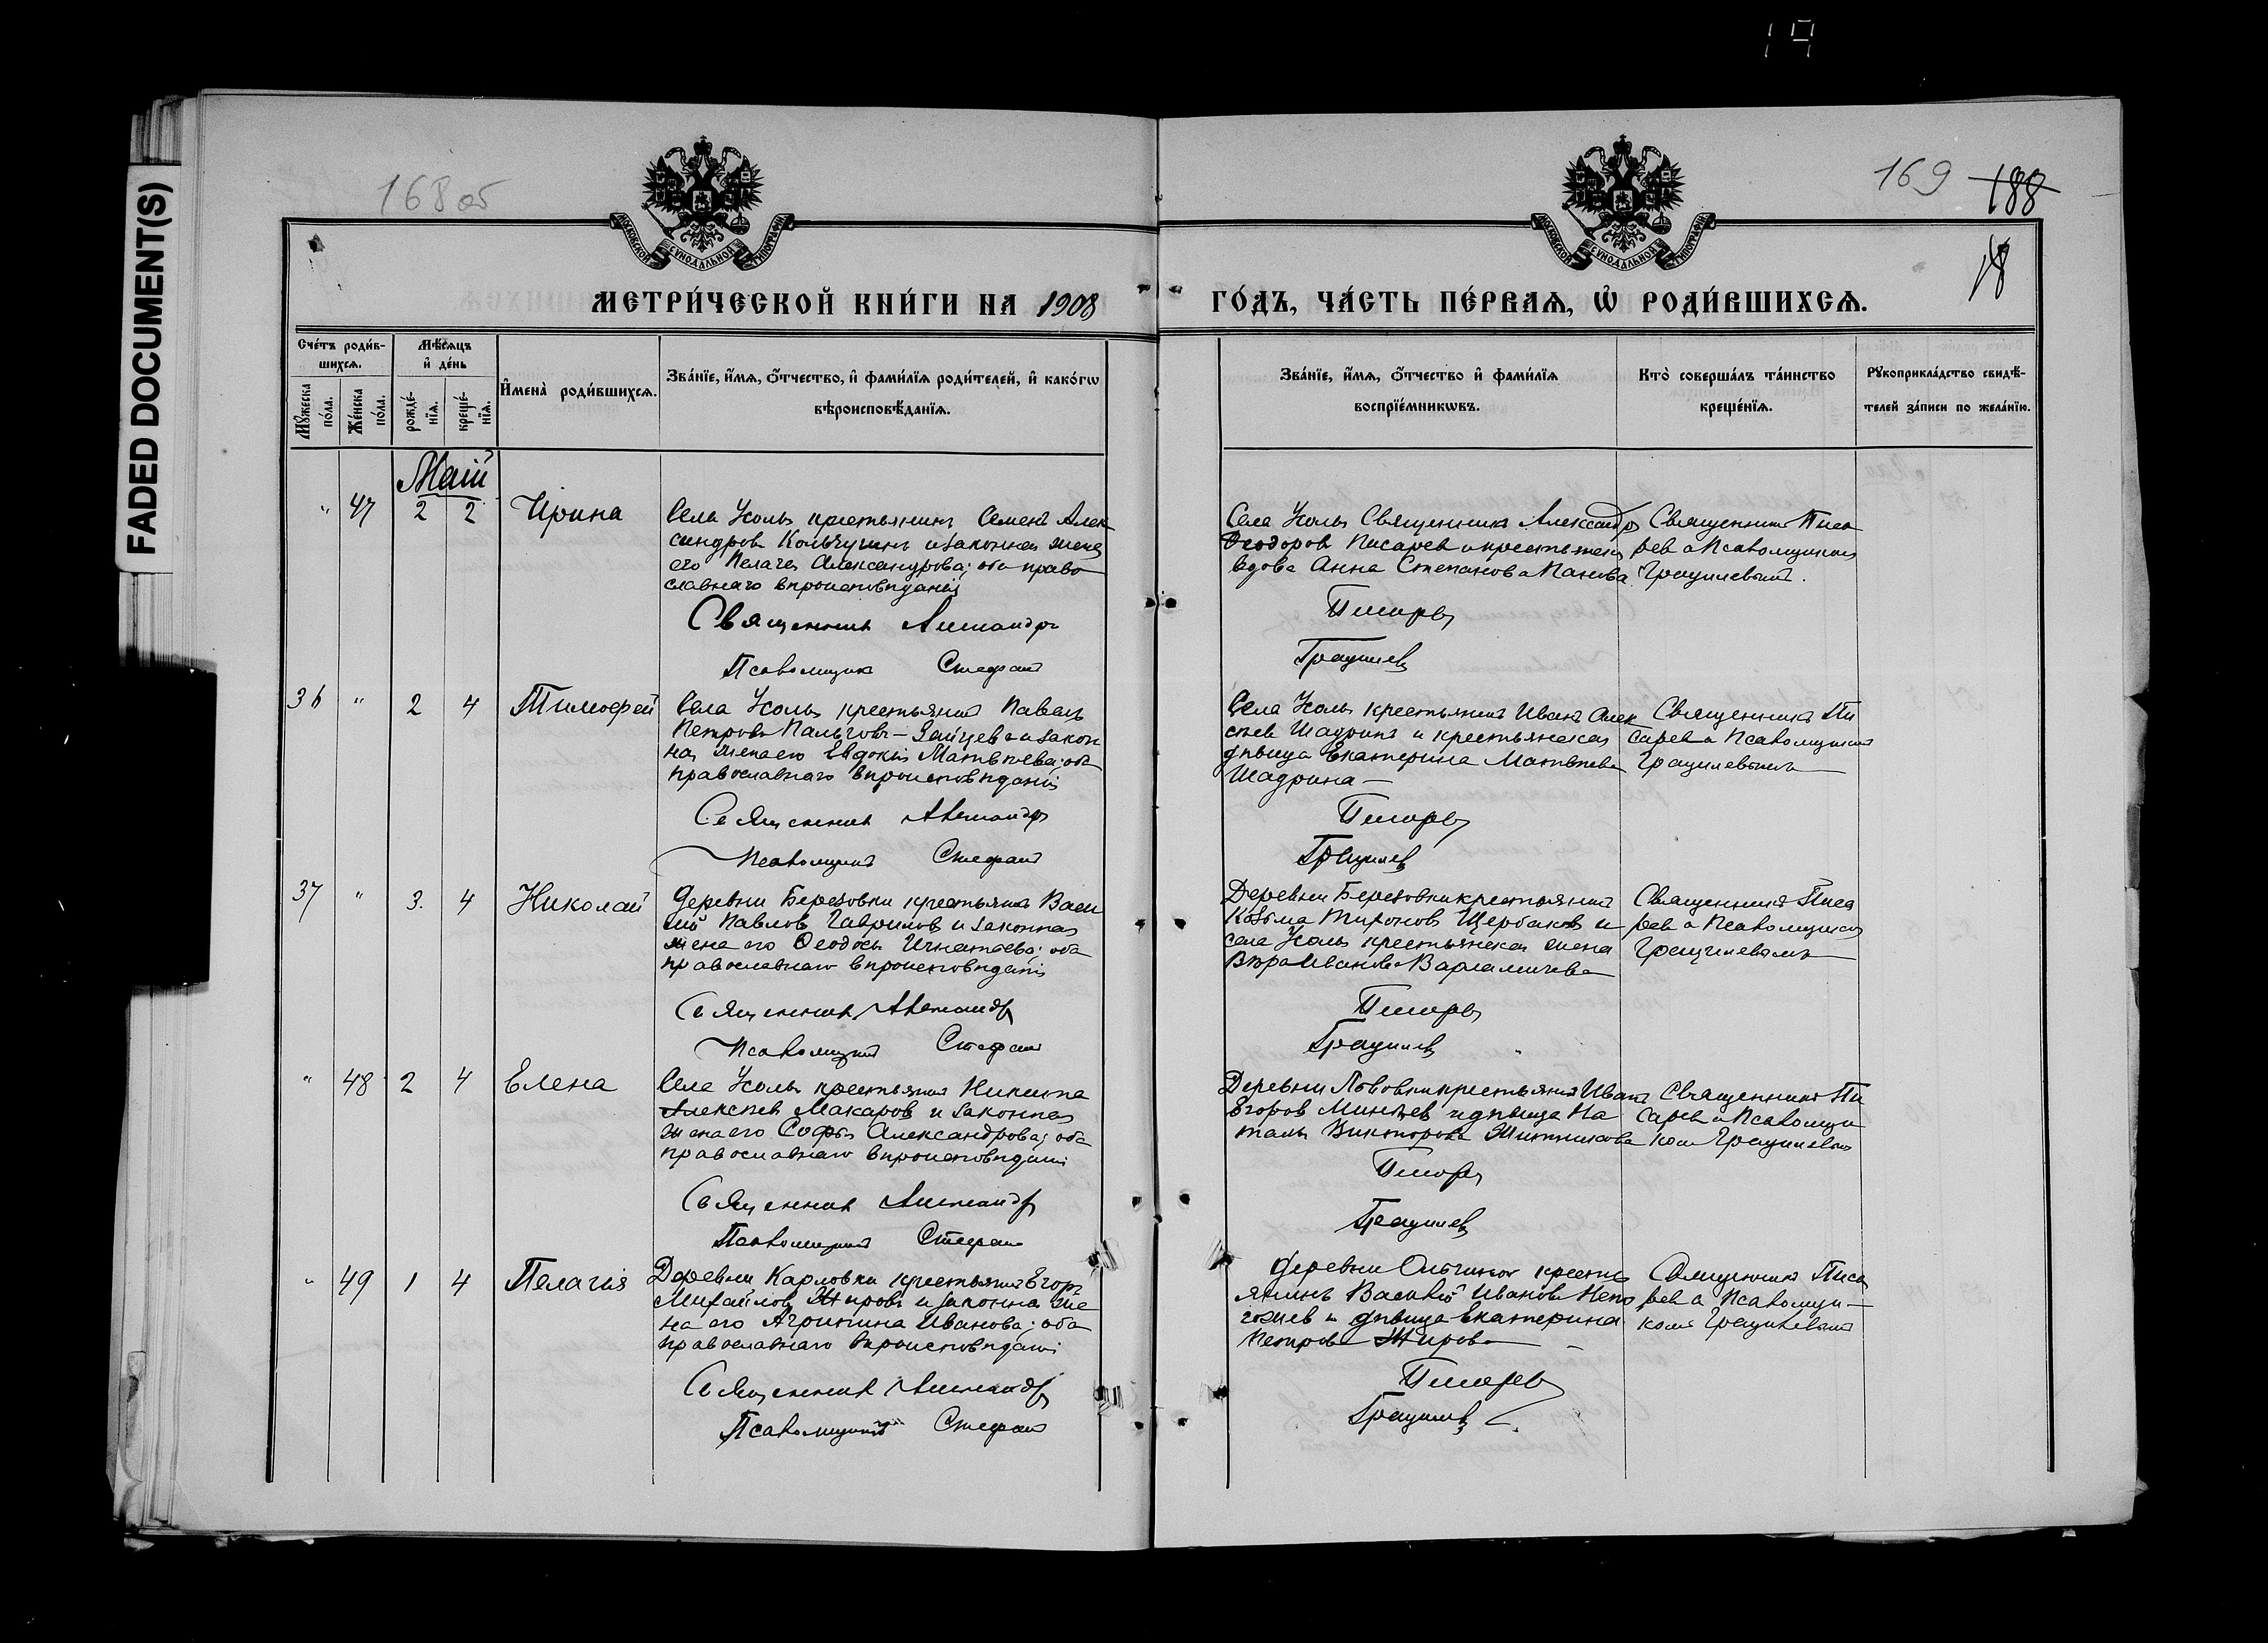 FADED DOCUMENT(S)
19
168 об
169 188
18
МОСКОВСКОЙ СѴНОДАЛЬНОЙ ТИПОГРАФІИ
МОСКОВСКОЙ СѴНОДАЛЬНОЙ ТИПОГРАФІИ
МЕТРИ́ЧЕСКОЙ КНИ́ГИ НА 1908
ГО́ДЪ, ЧА́СТЬ ПЕ́РВАѦ, Ѡ РОДИ́ВШИХСѦ.
Сче́тъ роди́в-
шихсѧ.
Мꙋжеска по́ла.
Же́нска по́ла.
Мѣ́сѧцъ
и҆ де́нь
рожде́-
нїѧ.
креще́-
нїѧ.
И҆мена̀ роди́вшихсѧ.
Зва́нїе, и҆́мѧ, ѻ҆́тчество, и҆ фами́лїѧ роди́телей, и҆ како́гѡ
вѣроисповѣ́данїѧ.
Зва́нїе, и҆́мѧ, ѻ҆́тчество и҆ фами́лїѧ
воспрїе́мникѡвъ.
Кто̀ соверша́лъ та́инство
креще́нїѧ.
Рꙋкоприкла́дство свидѣ́-
телей за́писи по жела́нїю.
Май
" 47 2 2 Ирина
Села Усолья крестьянинъ Семенъ Алек
сандровъ Кольчугинъ и законная жена
его Пелагея Александрова; оба право
славнаго вѣроисповѣданія
Священникъ Александръ
Псаломщикъ Стефанъ
Села Усолья Священникъ Александръ
Ѳеодоровъ Писарев и крестьянская
вдова Анна Степанова Панова
Писаревъ
Грацилевъ
Священникъ Писа
рев а Псаломщикомъ
Грацилевымъ.
36 " 2 4 Тимофей
Села Усолья крестьянинъ Павелъ
Петровъ Пальговъ-Зайцевъ и закон
ная жена его Евдокія Матвѣева; оба
православнаго вѣроисповѣданія
Священникъ Александръ
Псаломщикъ Стефанъ
Села Усолья крестьянинъ Иванъ Алек
сѣевъ Шадринъ и крестьянская
дѣвица Екатерина Матвѣева
Шадрина —
Писаревъ
Грацилевъ
Священникъ Пи
сарев а Псаломщикомъ
Грацилевымъ
37 " 3. 4 Николай
Деревни Березовки крестьянинъ Васи
лій Павловъ Гавриловъ и законная
жена его Ѳеодосья Игнатьева; оба
православнаго вѣроисповѣданія
Священникъ Александръ
Псаломщикъ Стефанъ
Деревни Березовки крестьянинъ
Козьма Тихоновъ Щербаковъ и
села Усолья крестьянская жена
Вѣра Иванова Варламичева
Писаревъ
Грацилевъ
Священникъ Писа
рев а Псаломщикомъ
Грацилевымъ
" 48 2 4 Елена
Села Усолья крестьянинъ Никита
Алексѣевъ Макаровъ и законная
жена его Софья Александрова; оба
православнаго вѣроисповѣданія
Священникъ Александръ
Псаломщикъ Стефанъ
Деревни Львовки крестьянинъ Иванъ
Егоровъ Минѣевъ и дѣвица На
талья Викторова Житникова
Писаревъ
Грацилевъ
Священникъ Пи
сарев а Псаломщи
комъ Грацилевымъ
" 49 1 4 Пелагія
Деревни Карловки крестьянинъ Егоръ
Михайловъ Жировъ и законная же
на его Агрипина Иванова; оба
православнаго вѣроисповѣданія
Священникъ Александръ
Псаломщикъ Стефанъ
Деревни крестья
янинъ Василій Ивановъ Непо
и дѣвица Екатерина
Петрова Жирова
Писаревъ
Грацилевъ
Священникъ Писа
рев а Псаломщи-
комъ Грацилевымъ